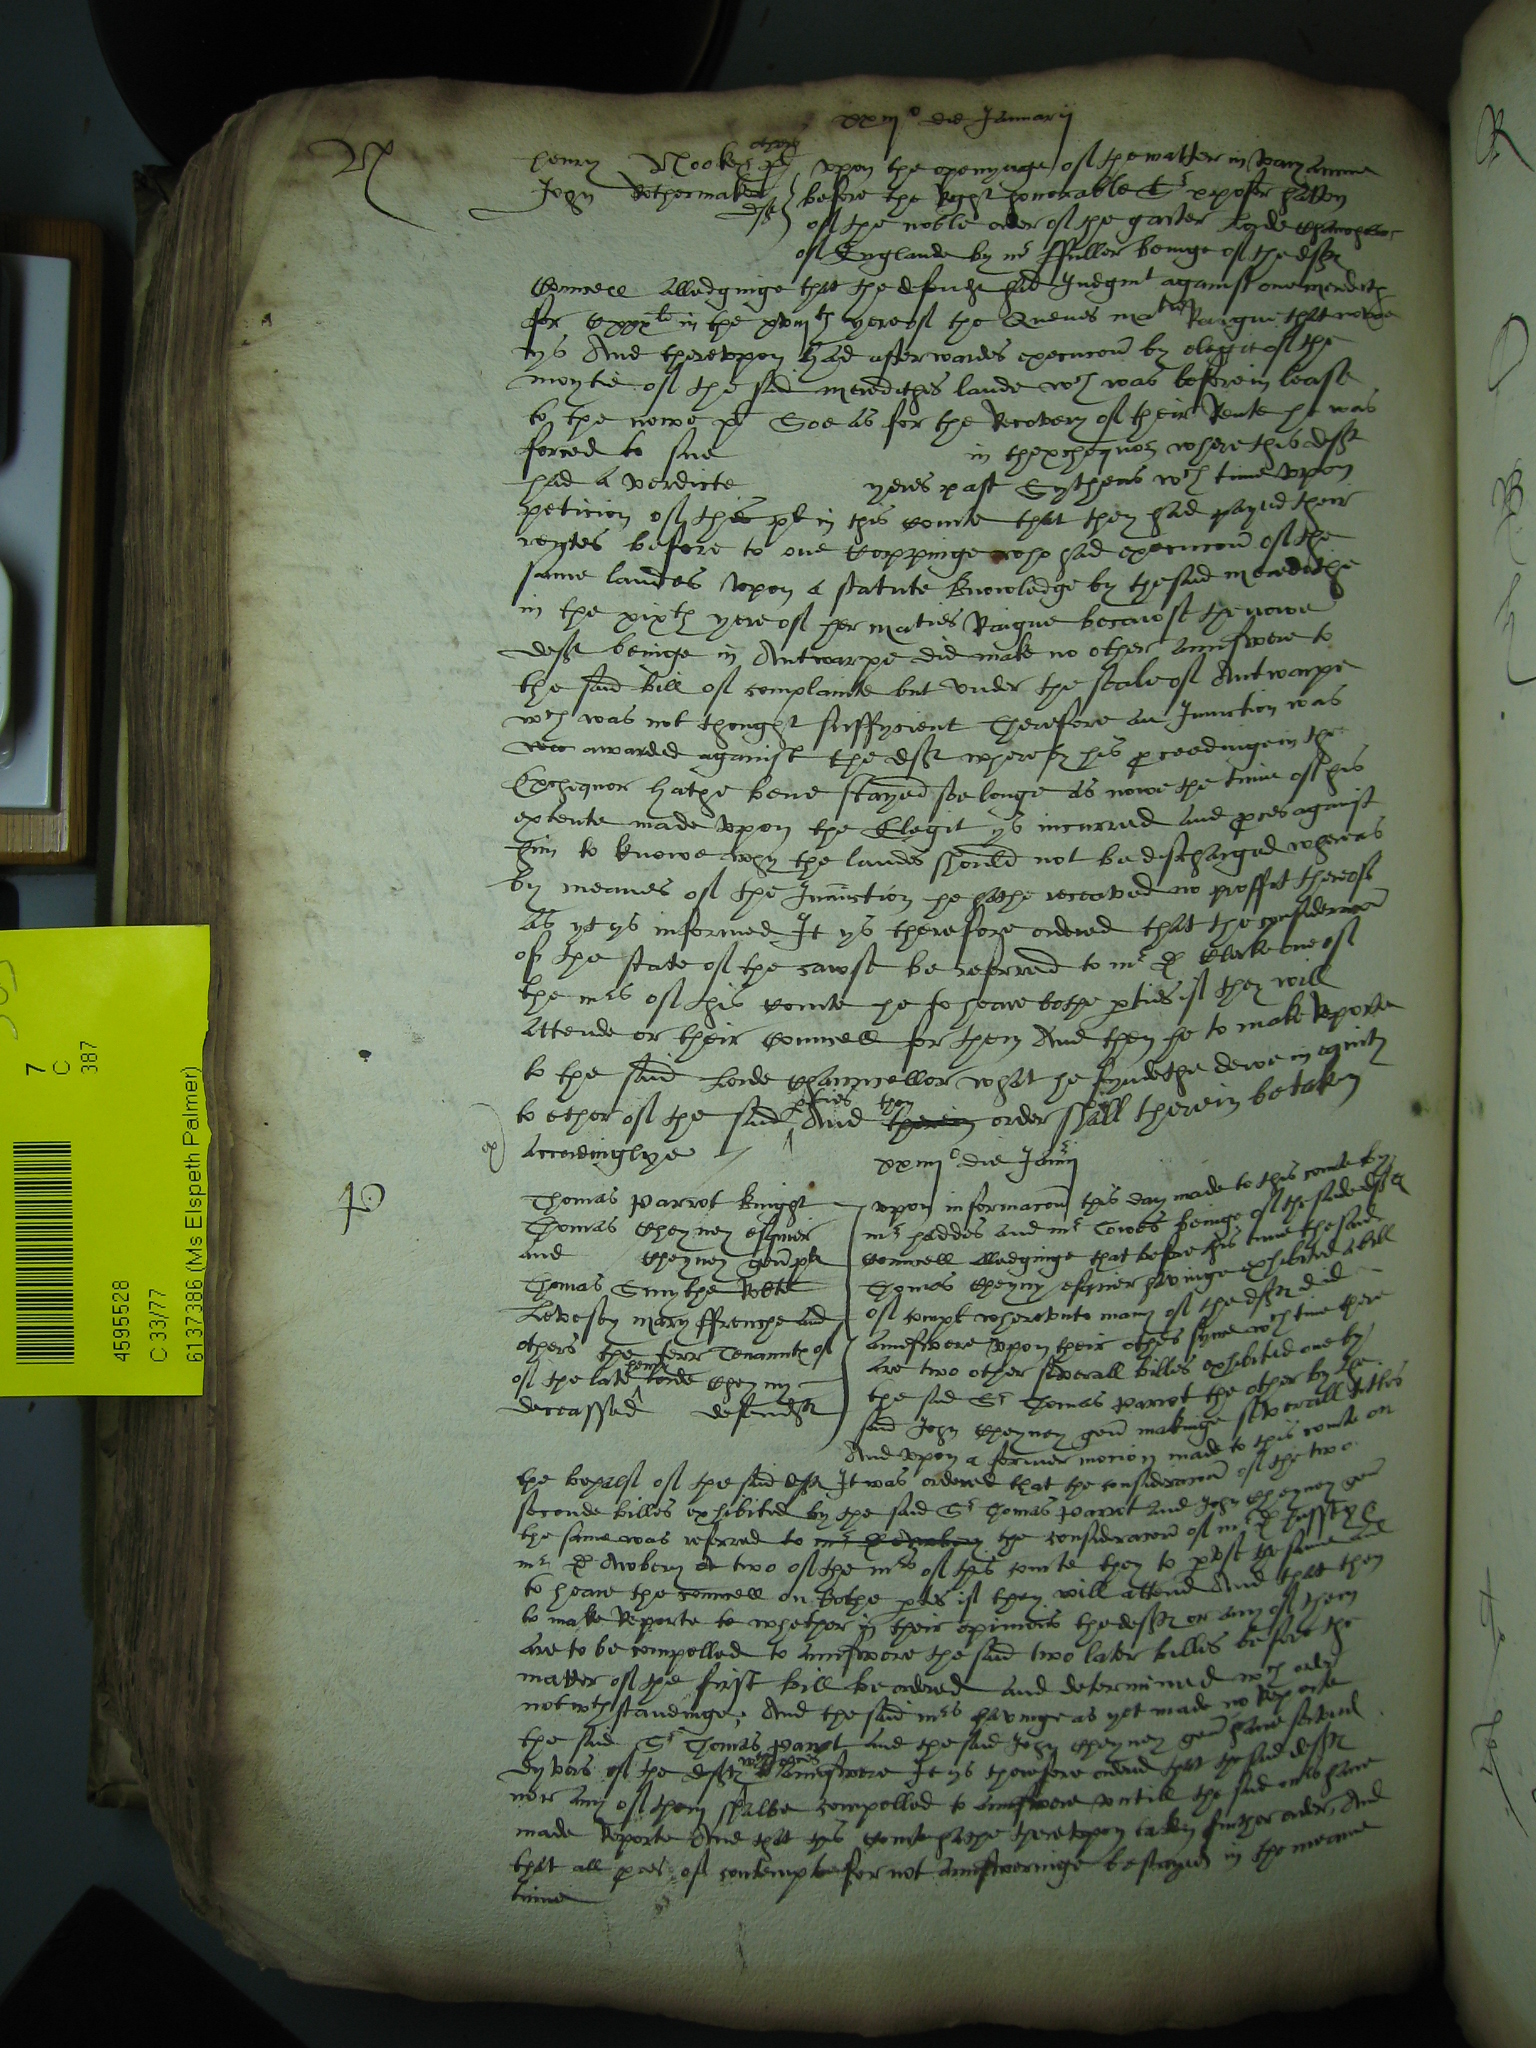 xxiij° die Januarij
Henry others pl
John defᵗ
upon the openynge of the matter in
before the Right honorable Sr xpofer hatton
of the noble order of the garter Lorde Chauncellor
of Englande by mr ffuller beinge of the deftes
Councell alledginge that the defendt had Judgmt against one meredith
for in the xviijth yere of the Quenes maties Raigne that nowe
ys And thereupon had afterwardes execucion by elegit of the
moytie of the said merediths lande wch was before in lease
to the nowe pl Soe as for the Recovery of their Rente he was
forced to sue in thexchequor where this deft
had a verdicte yeres past Sythens wch time upon
peticion of this pl in this courte that they had payed their
rentes before to one Coppinge who had execucion of the
same landes upon a statute knowledge by the said meredithe
in the xixth yere of her maties Raigne because the nowe
deft beinge in Antwarpe did make no other aunswere to
the said bill of complainte but under the seale of Antwarpe
wch was not thought suffycient Therefore an Iniunction was
awarded against the deft whereby his proceedinge in the
Exchequor hathe bene stayed soe longe as nowe the time of his
extente made upon the Elegit ys incurred and proces against
him to knowe why the landes should not be discharged whereas
by meanes of the Iniunction he hathe receaved no proffit thereof
As yt ys informed It ys therefore ordered that the consideracion
of the state of the cawse be referred to mr D Clerke one of
the mrs of this courte he to heare bothe pties if they will
attende or their councell for them And then he to make Reporte
to the said Lorde Chauncellor what he fyndethe dewe in equity
to ether of the said pties And then therein order shall therein be taken
accordinglye
xxiiij° die Januarij
Thomas Parrot knight
Thomas Cheyney esquier
and Cheyney gen pls
Thomas Smythe Robte
Levesey Mary ffrenche and
others the terr Tenauntes of
of the late henry lorde Cheyny
deceassed defendtes
upon informacion this day made to this courte by
mr haddes and mr Towes beinge of the saide deftes
councell alledginge that before this time the said
Thomas Cheyny esquier havinge exhibited a bill
of complt whereunto many of the deftes did
aunswere upon their othes synce wch time there
are two other severall billes exhibited one by
the said Sr Thomas Parrot the other by the
said John Cheyney gen makinge severall titles
And upon a former mocion made to this courte on
the behalf of the said deftes It was ordered that the consideracion of the two
seconde billes exhibited by the said Sr Thomas Parrot and John Cheyney gen
the same was referred to the consideracion of mr D
mr D Awbery two of the mrs of this courte they to pvse the same and
to heare the councell on bothe ptes if they will attend And that they
to make Reporte to whether in their opinions the deftes or any of them
are to be compelled to aunswere the said two later billes before the
matter of the first bill be ordered and determined wch order
notwthstandinge, And the said mrs havinge as yet made no Reporte
the said Sr Thomas Parrot and the said John Cheyney gen have served
dyvers of the deftes wth proces to aunswere It ys therefore ordered that the said deftes
nor any of them shalbe compelled to aunswere untill the said mrs have
made Reporte And that this courte hathe thereupon taken further order, And
that all proces of contempte for not aunsweringe be stayed in the meane
time
7
C
387
4595528
C 33/77
61377386 (Ms Elspeth Palmer)